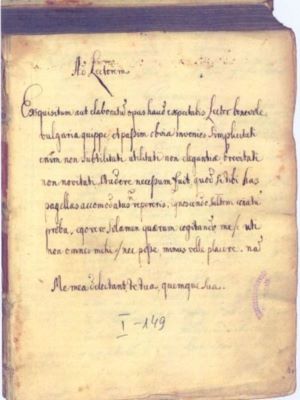 Ad Lectorem
Exquisitum aut elaboratū opus haud expectabis Lector benevole
vulgaria quippe et passim obvia invenies simplicitati
enim non subtilitati utilitati non elegantiæ brevitati
non novitati studere necessum fuit, quod si tibi has
pagellas accomodatas repereris, quosendo saltem
proba, me uti
non omnes mihi nec posse minus velle placere. nā
Me mea delectant, te tua, quemque sua.
I-149